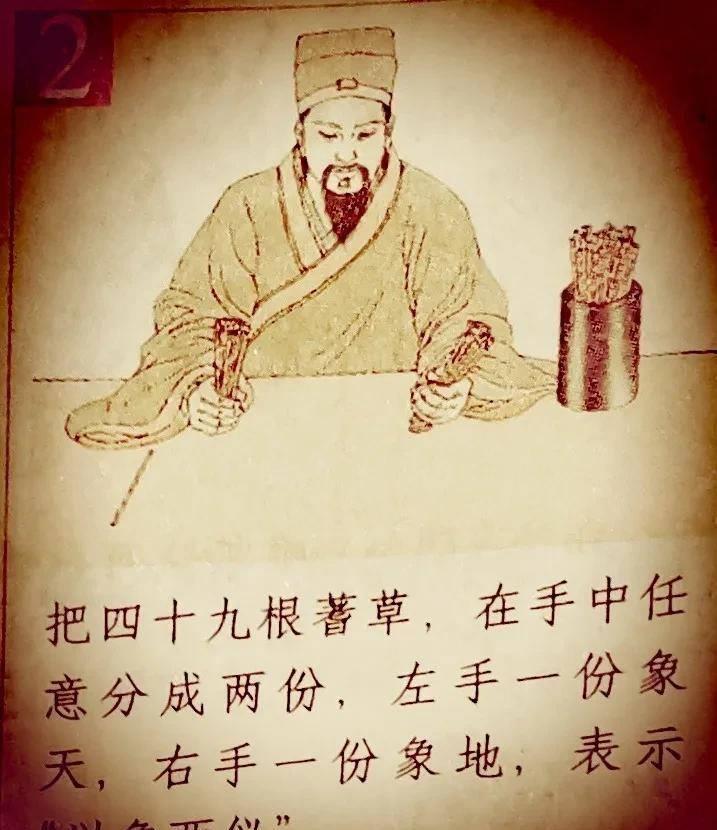 2
把四十九根蓍草，在手中任
意分成两份，左手一份象
天，右手一份象地，表示
“以象两仪”